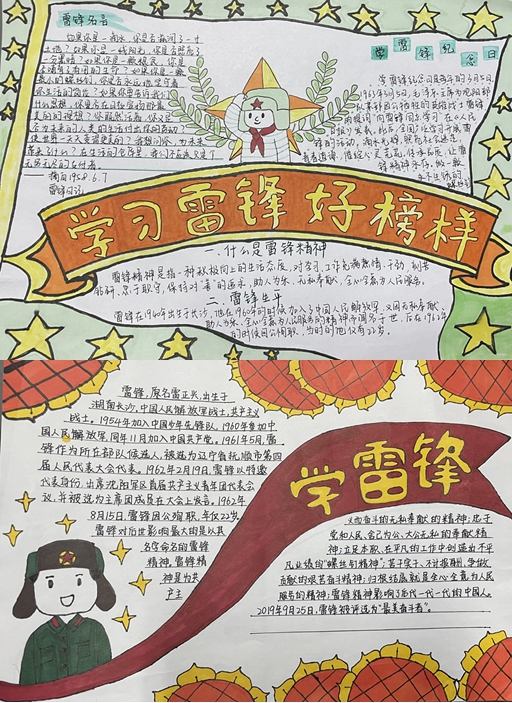 雷锋名言
如果你是一滴水,你是否滋润了一寸
土地?如果你是一线阳光,你是否照亮了
一分黑暗?如果你是一颗粮食,你是
否哺育了有用的生命?如果你是一颗
最小的螺丝钉,你是否永远坚守着
你生活的岗位?如果你要告诉我们
什么思想,你是否在日夜宣扬那最
美丽的理想?你既然活着,你又是
否为未来的人类的生活付出你的劳动,
使世界一天天变得更美丽?我想问你,为未来
带来了什么?在生活的仓库里,我们不应该只是个
无穷无尽的支付者。
摘自1958.6.7
雷锋日记
学雷锋纪念日
学雷锋纪念日是每年的3月5日,
学习雷锋好榜样
一、什么是雷锋精神
雷锋精神是指一种积极向上的生活态度,对学习、工作充满热情、干劲,刻苦
钻研,忠于职守,保持对美的追求,助人为乐、无私奉献、全心全意为人民服务。
二、雷锋生平
雷锋在1940年出生于长沙,他在1960年的时候加入了中国人民解放军,又因无私奉献、
助人为乐、全心全意为人民服务的精神而闻名于世,后在1962年
的时候因公殉职,当时的他仅有22岁。
雷锋,原名雷正兴,出生于
湖南长沙,中国人民解放军战士,共产主义
战士。1954年加入中国少年先锋队,1960年参加中
国人民解放军,同年11月加入中国共产党。1961年5月,雷
锋作为所在部队候选人,被选为辽宁省抚顺市第四
届人民代表大会代表。1962年2月19日,雷锋以特邀
代表身份,出席沈阳军区首届共产主义青年团代表会
议,并被选为主席团成员在大会上发言。1962年
8月15日,雷锋因公殉职,年仅22岁。
雷锋对后世影响最大的是以其
名字命名的雷锋
精神,雷锋精
神是为共
产主
学雷锋
义而奋斗的无私奉献的精神;忠于
党和人民、舍己为公、大公无私的奉献精
神;立足本职、在平凡的工作中创造出不平
凡业绩的“螺丝钉精神”;苦干实干、不计报酬、争做
贡献的艰苦奋斗精神;归根结底就是全心全意为人民
服务的精神;雷锋精神影响了后代一代一代的中国人。
2019年9月25日,雷锋被评选为“最美奋斗者”。